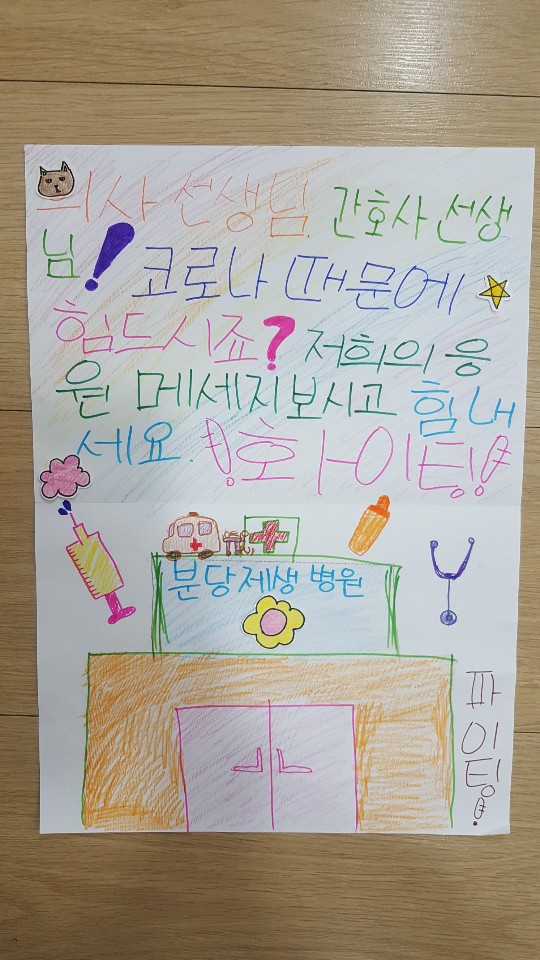 의사 선생님. 간호사 선생
님! 코로나 때문에
힘드시죠? 저희의 응
원 메세지보시고 힘내
세요. !호아이팅!
분당제생병원
파이팅!